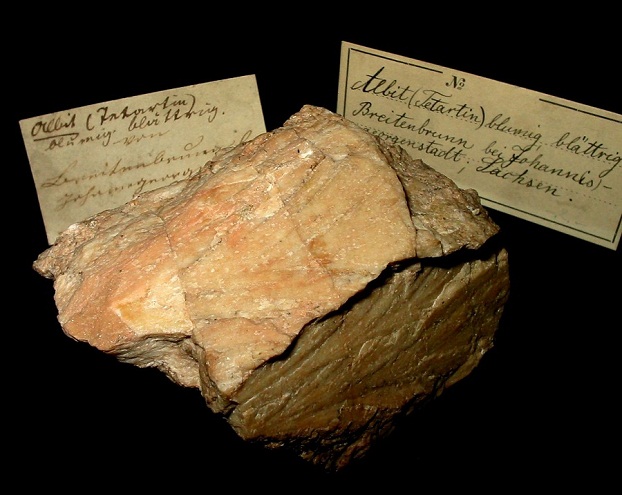 Albit (Tetartin)
blumig blättrig.
von
Breitenbrunn
№
Albit (Tetartin) blumig, blättrig
Breitenbrunn bei Johannes-
georgenstadt, Sachsen.